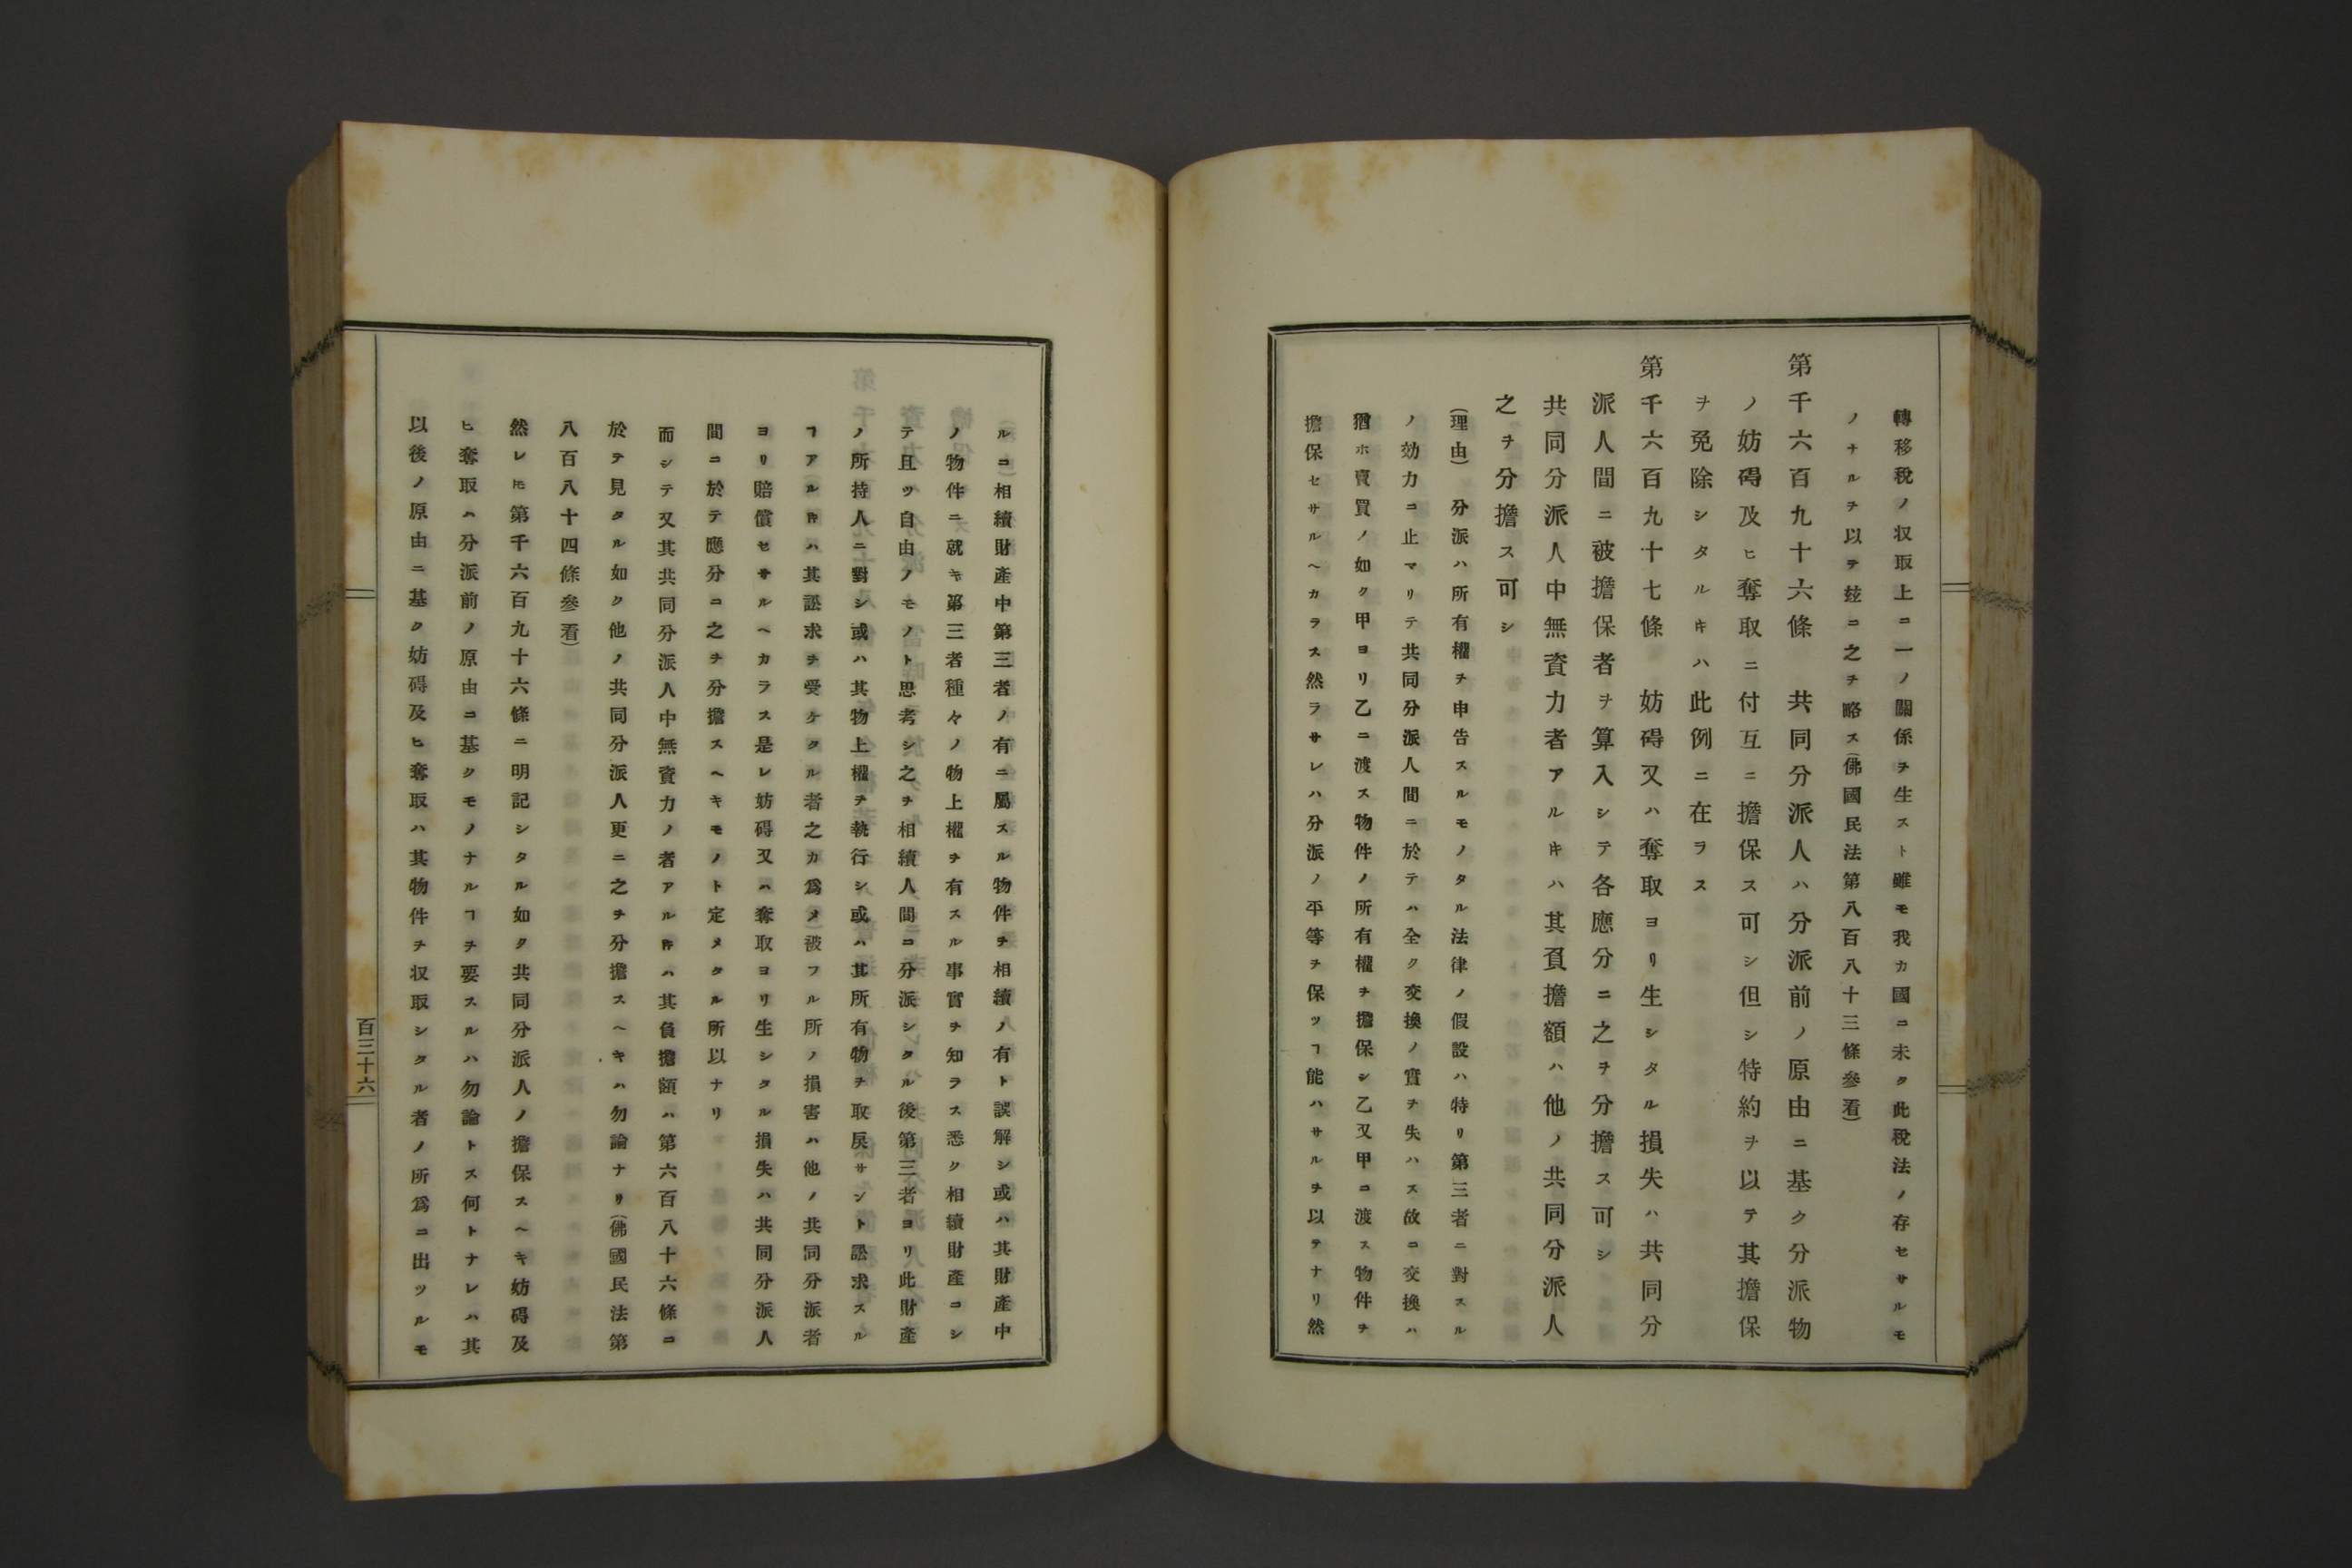 轉移稅ノ収取上ニ一ノ關係ヲ生スト雖モ我カ國ニ未タ此稅法ノ存セサルモ
ノナルヲ以テ玆ニ之ヲ略ス(佛國民法第八百八十三條參看)
第千六百九十六條　共同分派人ハ分派前ノ原由ニ基ク分派物
ノ妨碍及ヒ奪取ニ付互ニ擔保ス可シ但シ特約ヲ以テ其擔保
ヲ免除シタルキハ此例ニ在ラス
第千六百九十七條　妨碍又ハ奪取ヨリ生シタル損失ハ共同分
派人間ニ被擔保者ヲ算入シテ各應分ニ之ヲ分擔ス可シ
共同分派人中無資力者アルキハ其負擔額ハ他ノ共同分派人
之ヲ分擔ス可シ
(理由)　分派ハ所有權ヲ申告スルモノタル法律ノ假設ハ特リ第三者ニ對スル
ノ効力ニ止マリテ共同分派人間ニ於テハ全ク交換ノ實ヲ失ハス故ニ交換ハ
猶ホ賣買ノ如ク甲ヨリ乙ニ渡ス物件ノ所有權ヲ擔保シ乙又甲ニ渡ス物件ヲ
擔保セサルヘカラス然ラサレハ分派ノ平等ヲ保ツヿ能ハサルヲ以テナリ然
ルニ相續財產中第三者ノ有ニ屬スル物件ヲ相續ノ有ト誤解シ或ハ其財產中
ノ物件ニ就キ第三者種々ノ物上權ヲ有スル事實ヲ知ラス悉ク相續財產ニシ
テ且ツ自由ノモノト思考シ之ヲ相續人間ニ分派シタル後第三者ヨリ此財產
ノ所持人ニ對シ或ハ其物上權ヲ執行シ或ハ其所有物ヲ取戾サント訟求スル
ヿアルキハ其訟求ヲ受ケタル者之カ爲メ被フル所ノ損害ハ他ノ共同分派者
ヨリ賠償セサルヘカラス是レ妨碍又ハ奪取ヨリ生シタル損失ハ共同分派人
間ニ於テ應分ニ之ヲ分擔スヘキモノト定メタル所以ナリ
而シテ又其共同分派人中無資力ノ者アルキハ其負擔額ハ第六百八十六條ニ
於テ見タル如ク他ノ共同分派人更ニ之ヲ分擔スヘキハ勿論ナリ(佛國民法第
八百八十四條參看)
然レ𪜈第千六百九十六條ニ明記シタル如ク共同分派人ノ擔保スヘキ妨碍及
ヒ奪取ハ分派前ノ原由ニ基クモノナルヿヲ要スルハ勿論トス何トナレハ其
以後ノ原由ニ基ク妨碍及ヒ奪取ハ其物件ヲ収取シタル者ノ所爲ニ出ツルモ
百三十六